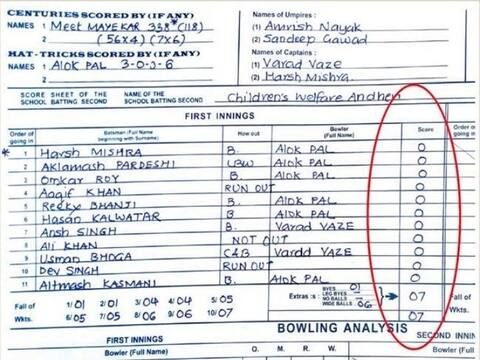 CENTURIES SCORED BY (IF ANY)
1 Meet MAYEKAR 338* (118)
2 (56X4) (7X6)
HAT-TRICKS SCORED BY (IF ANY)
1 Alok PAL 3-0-0-6
2
Names of Umpires :
1 Amrish Nayak
2 Sandeep Gawad
Names of Captains :
1 Varad Vaze
2 Harsh Mishra
SCORE SHEET OF THE SCHOOL BATTING SECOND NAME OF THE SCHOOL BATTING SECOND Children's Welfare Andheri
FIRST INNINGS
Order of going in Batsman (Full Name) beginning with Surname) How out Bowler (Full Name) Score Order of going in
* 1 Harsh MISHRA B. Alok PAL 0
2 Aklamash PARDESHI LBW Alok PAL 0
3 Omkar ROY B. Alok PAL 0
4 Aaqif KHAN RUN OUT 0
5 Recky BHANJI B. Alok PAL 0
6 Hasan KALWATAR B Alok PAL 0
7 Ansh SINGH B. Varad VAZE 0
8 Ali KHAN NOT OUT 0
9 Usman BHOGA C&B Varad VAZE 0
10 Dev SINGH RUN OUT 0
11 Altmash KASMANI B. Alok PAL 0
Fall of 1/01 2/01 3/04 4/04 5/05 Extras :8 BYES 01 LEG BYES NO BALLS WIDE BALLS 06 07 Fall of
Wkts. 6/05 7/06 8/06 9/06 10/07 07 Wkts.
BOWLING ANALYSIS SECOND INNING
Bowler (Full Name) O. M. R. W. Bowler (Full Name)